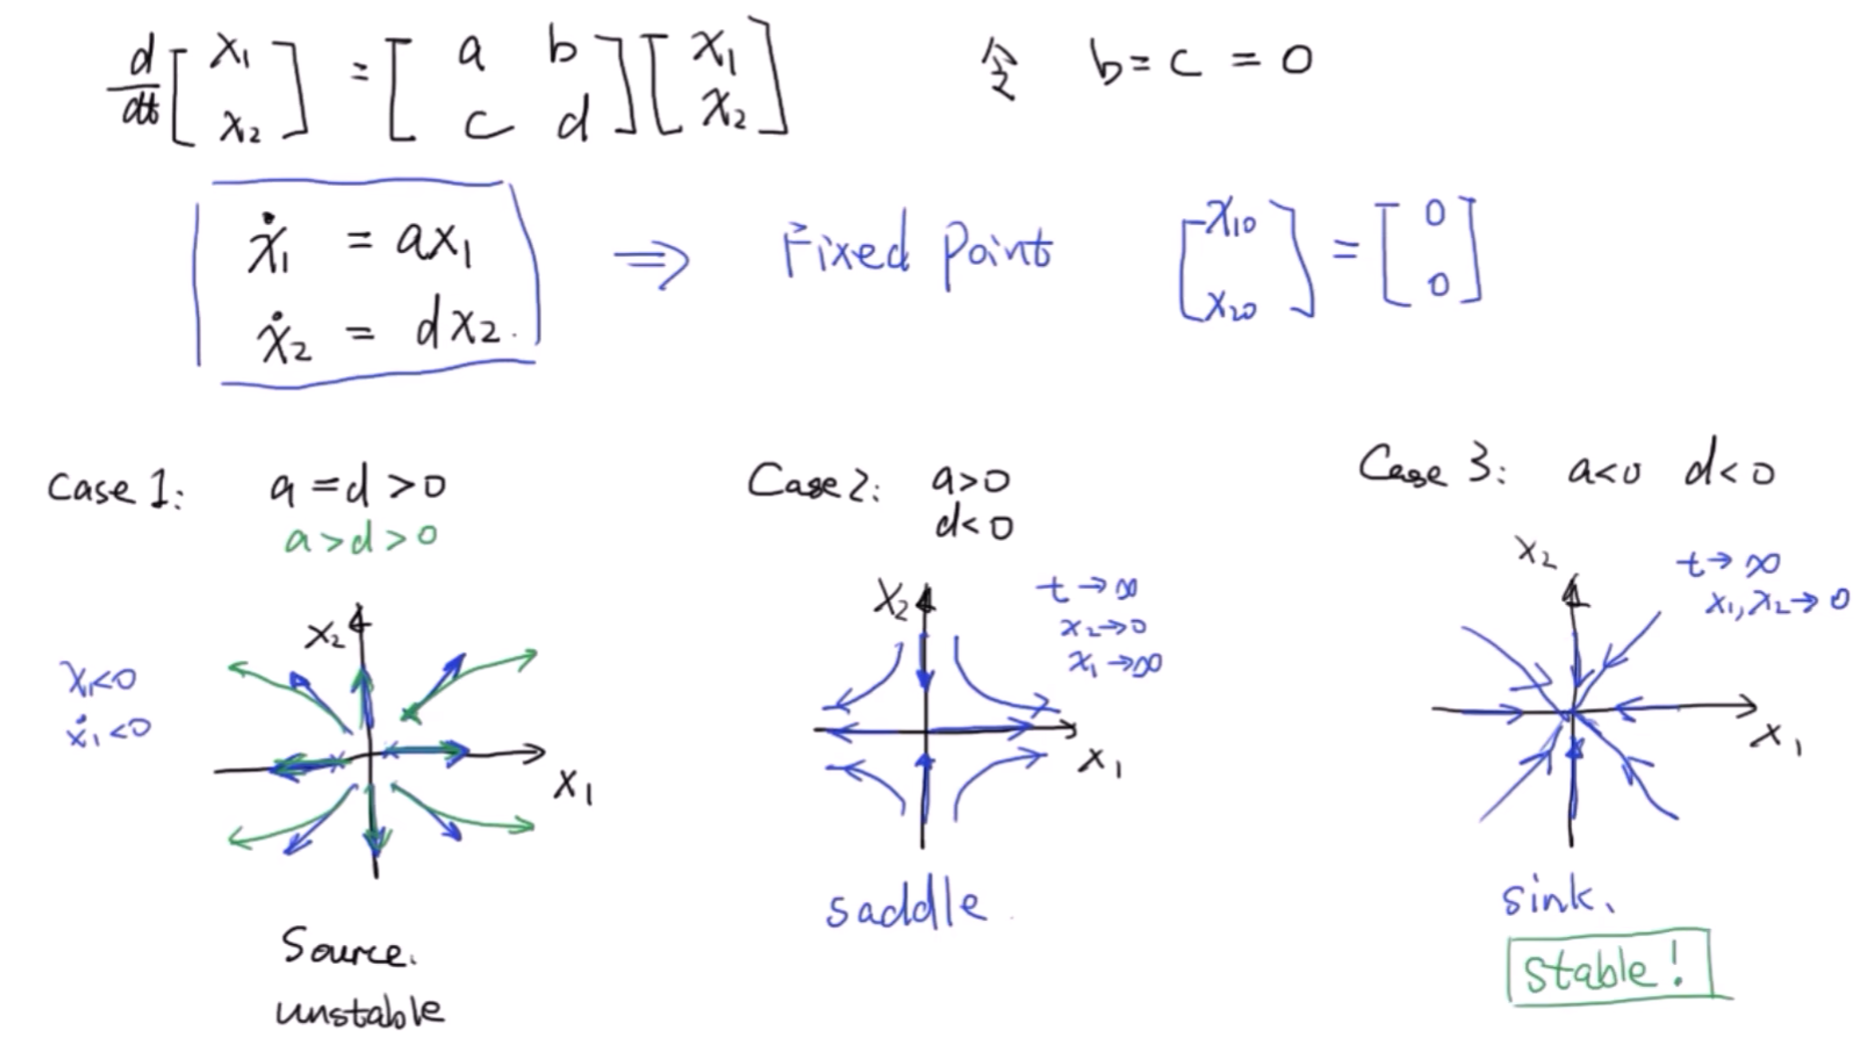 d/dt [x₁ x₂] = [a b c d] [x₁ x₂] 令 b = c = 0
ẋ₁ = ax₁
ẋ₂ = dx₂.
⇒ Fixed Point [x₁₀ x₂₀] = [0 0]
Case 1: a = d > 0
a > d > 0
x₂
x₁<0
ẋ₁<0
x₁
Source.
unstable
Case 2: a>0
d<0
x₂
t→∞
x₂→0
x₁→∞
x₁
saddle
Case 3: a<0 d<0
x₂
t→∞
x₁,x₂→0
x₁
sink.
stable!